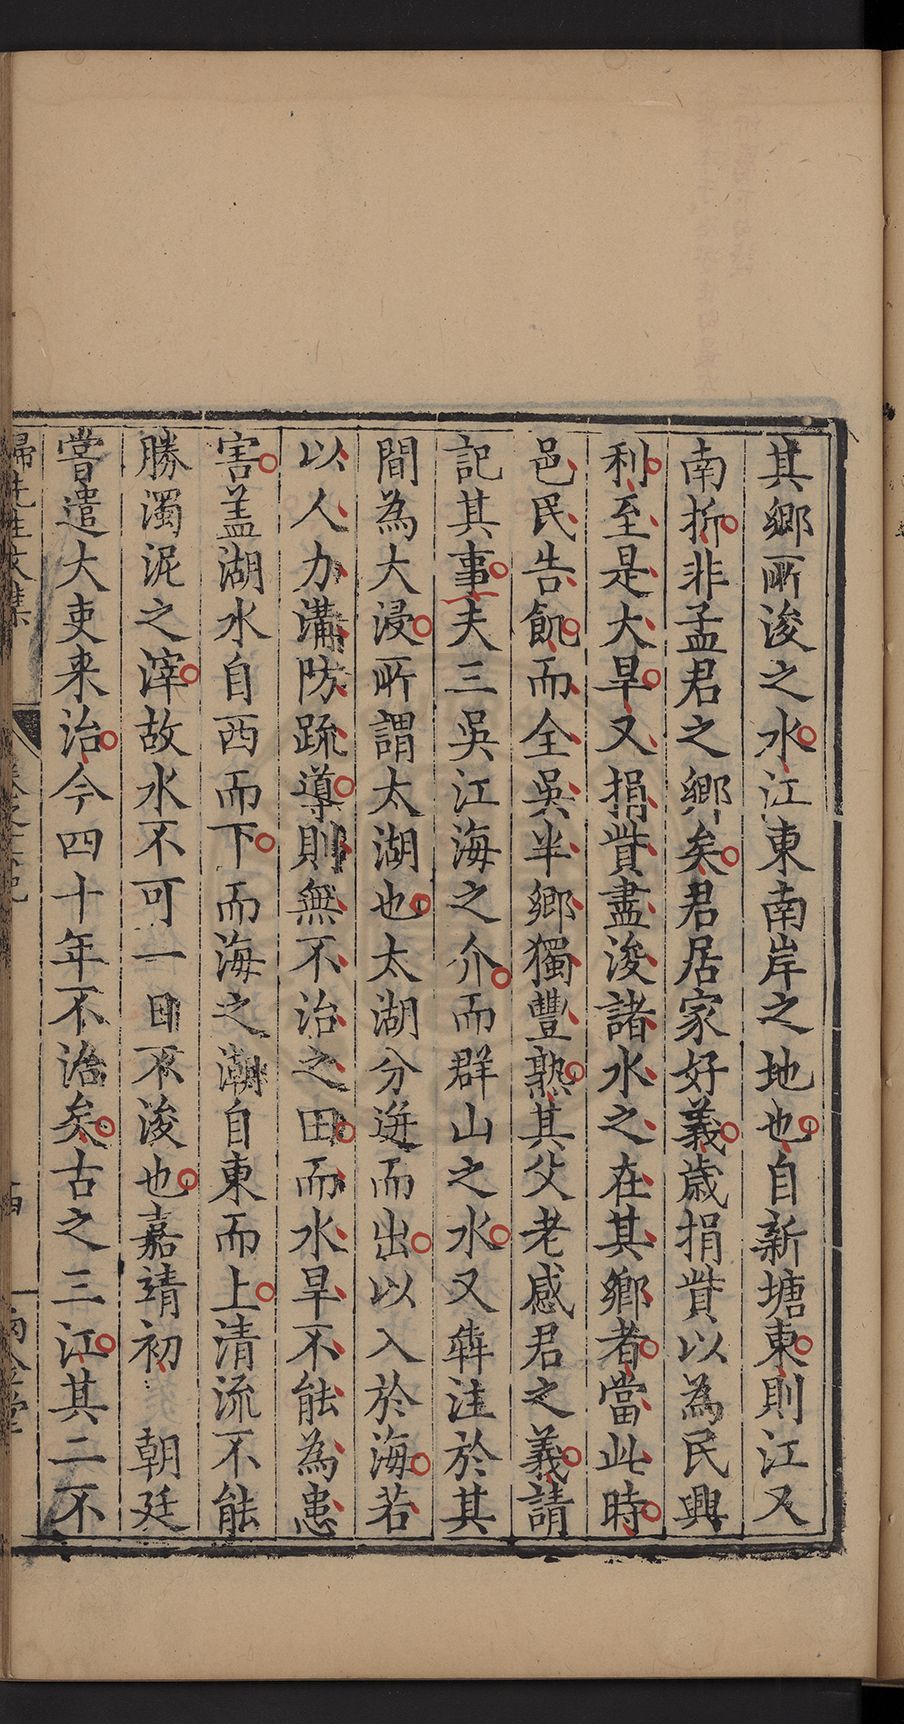 其鄉所浚之水江東南岸之地也自新塘東則江又
南折非孟君之鄉矣君居家好義歲捐貲以為民興
利至是大旱又捐貲盡浚諸水之在其鄉者當此時
邑民告飢而全吳半鄉獨豐熟其父老感君之義請
記其事夫三吳江海之介而群山之水又犇注於其
間為大浸所謂太湖也太湖分迸而出以入於海若
以人力溝防疏導則無不治之田而水旱不能為患
害盖湖水自西而下而海之潮自東而上清流不能
勝濁泥之滓故水不可一日不浚也嘉靖初 朝廷
嘗遣大吏来治今四十年不治矣古之三江其二不
歸先生文集